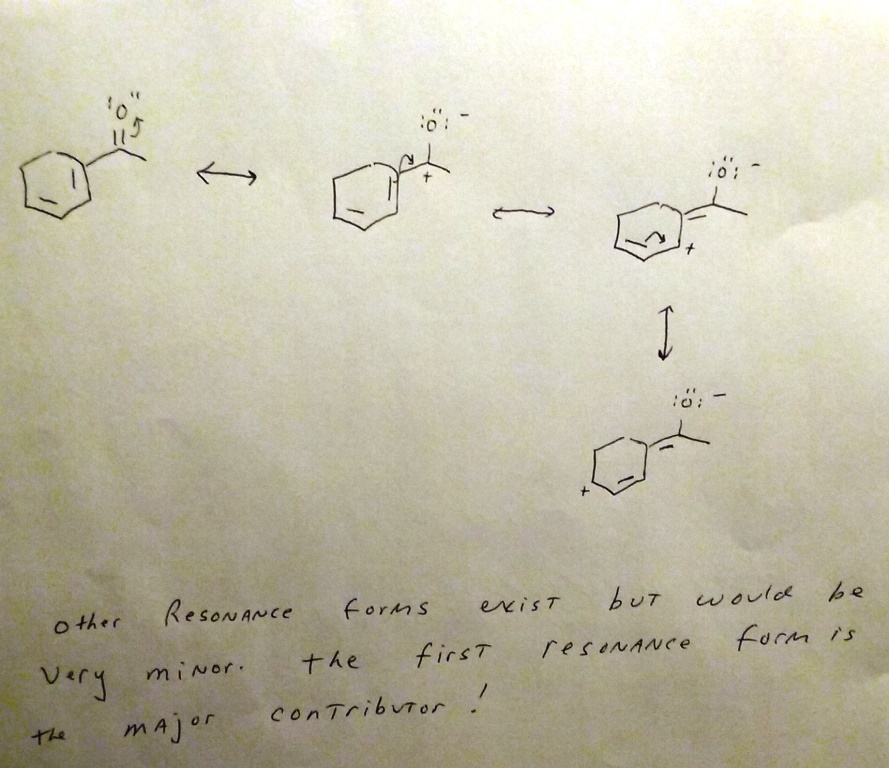 :O:
:O: -
+
:O: -
+
:O: -
+
Other Resonance forms exist but would be
very minor. the first resonance form is
the major contributor!